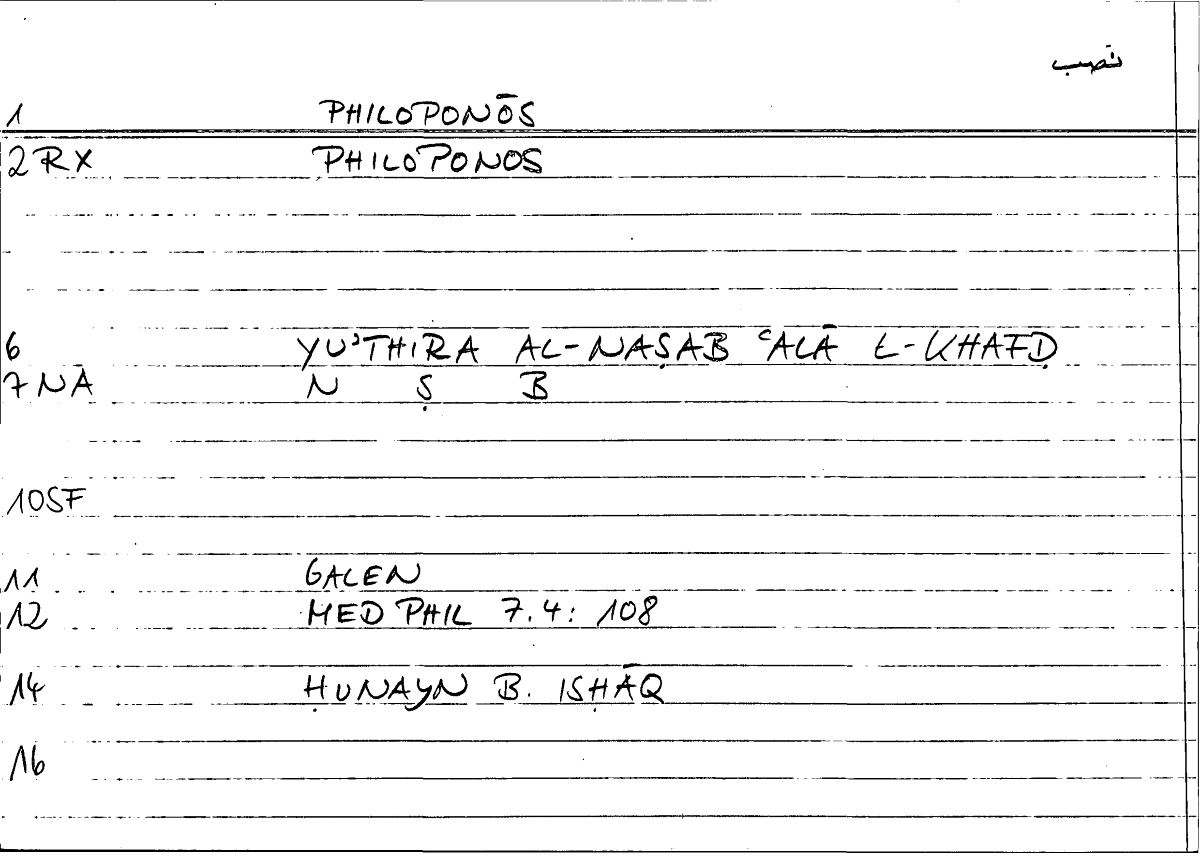 نصب
1 PHILOPONŌS
2 RX PHILOPONOS
6 YUʾTHIRA AL-NAṢAB ʿALĀ L-KHAFḌ
7 NĀ N Ṣ B
10 SF
11 GALEN
12 MED PHIL 7.4: 108
14 ḤUNAYN B. ISḤĀQ
16